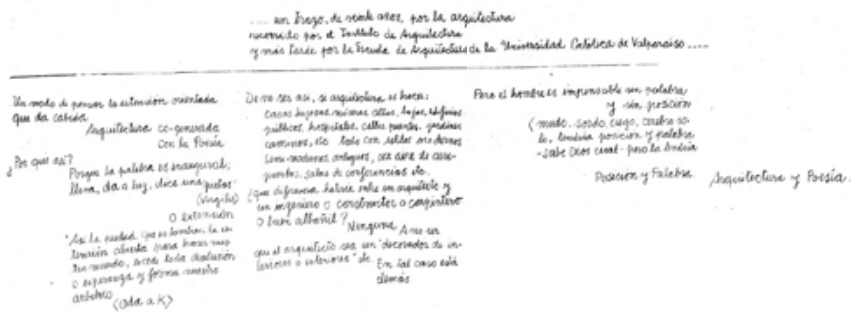 ..... un trozo, de veinte años, por la arquitectura
recorrido por el Instituto de Arquitectura
y más tarde por la Escuela de Arquitectura de la Universidad Católica de Valparaíso .....
Un modo de pensar la extensión orientada
que da cabida
Arquitectura co-generada
con la Poesía
¿Por qué así?
Porque la palabra es inaugural;
llena, da a luz, dice una
(Virgilio)
O extensión
"Así la ciudad que es también la ex-
tensión abierta para hacer nues-
tro mundo, toda desolución
o esperanza y forma nuestro
arbitrio
(Oda a K)
De no ser así, si arquitectura es hacer:
casas mejores mismas altas, bajas, edificios
públicos, hospitales, calles puentes, jardines
caminos, etc todo con
semi-modernos, antiguos, con aire de
puertos, salas de conferencias etc.
¿Que diferencia habría entre un arquitecto y
un ingeniero o constructor o carpintero
o buen albañil?
Ninguna
A no ser
que el arquitecto sea un "decorador de in-
teriores o exteriores" etc.
En tal caso está
demás
Pero el hombre es impensable sin palabra
y sin posición
(mudo, sordo, ciego, cerebro so-
lo, tendría posición y palabra
-sabe Dios cual- pero la tendría
Posición y Palabra
Arquitectura y Poesía.